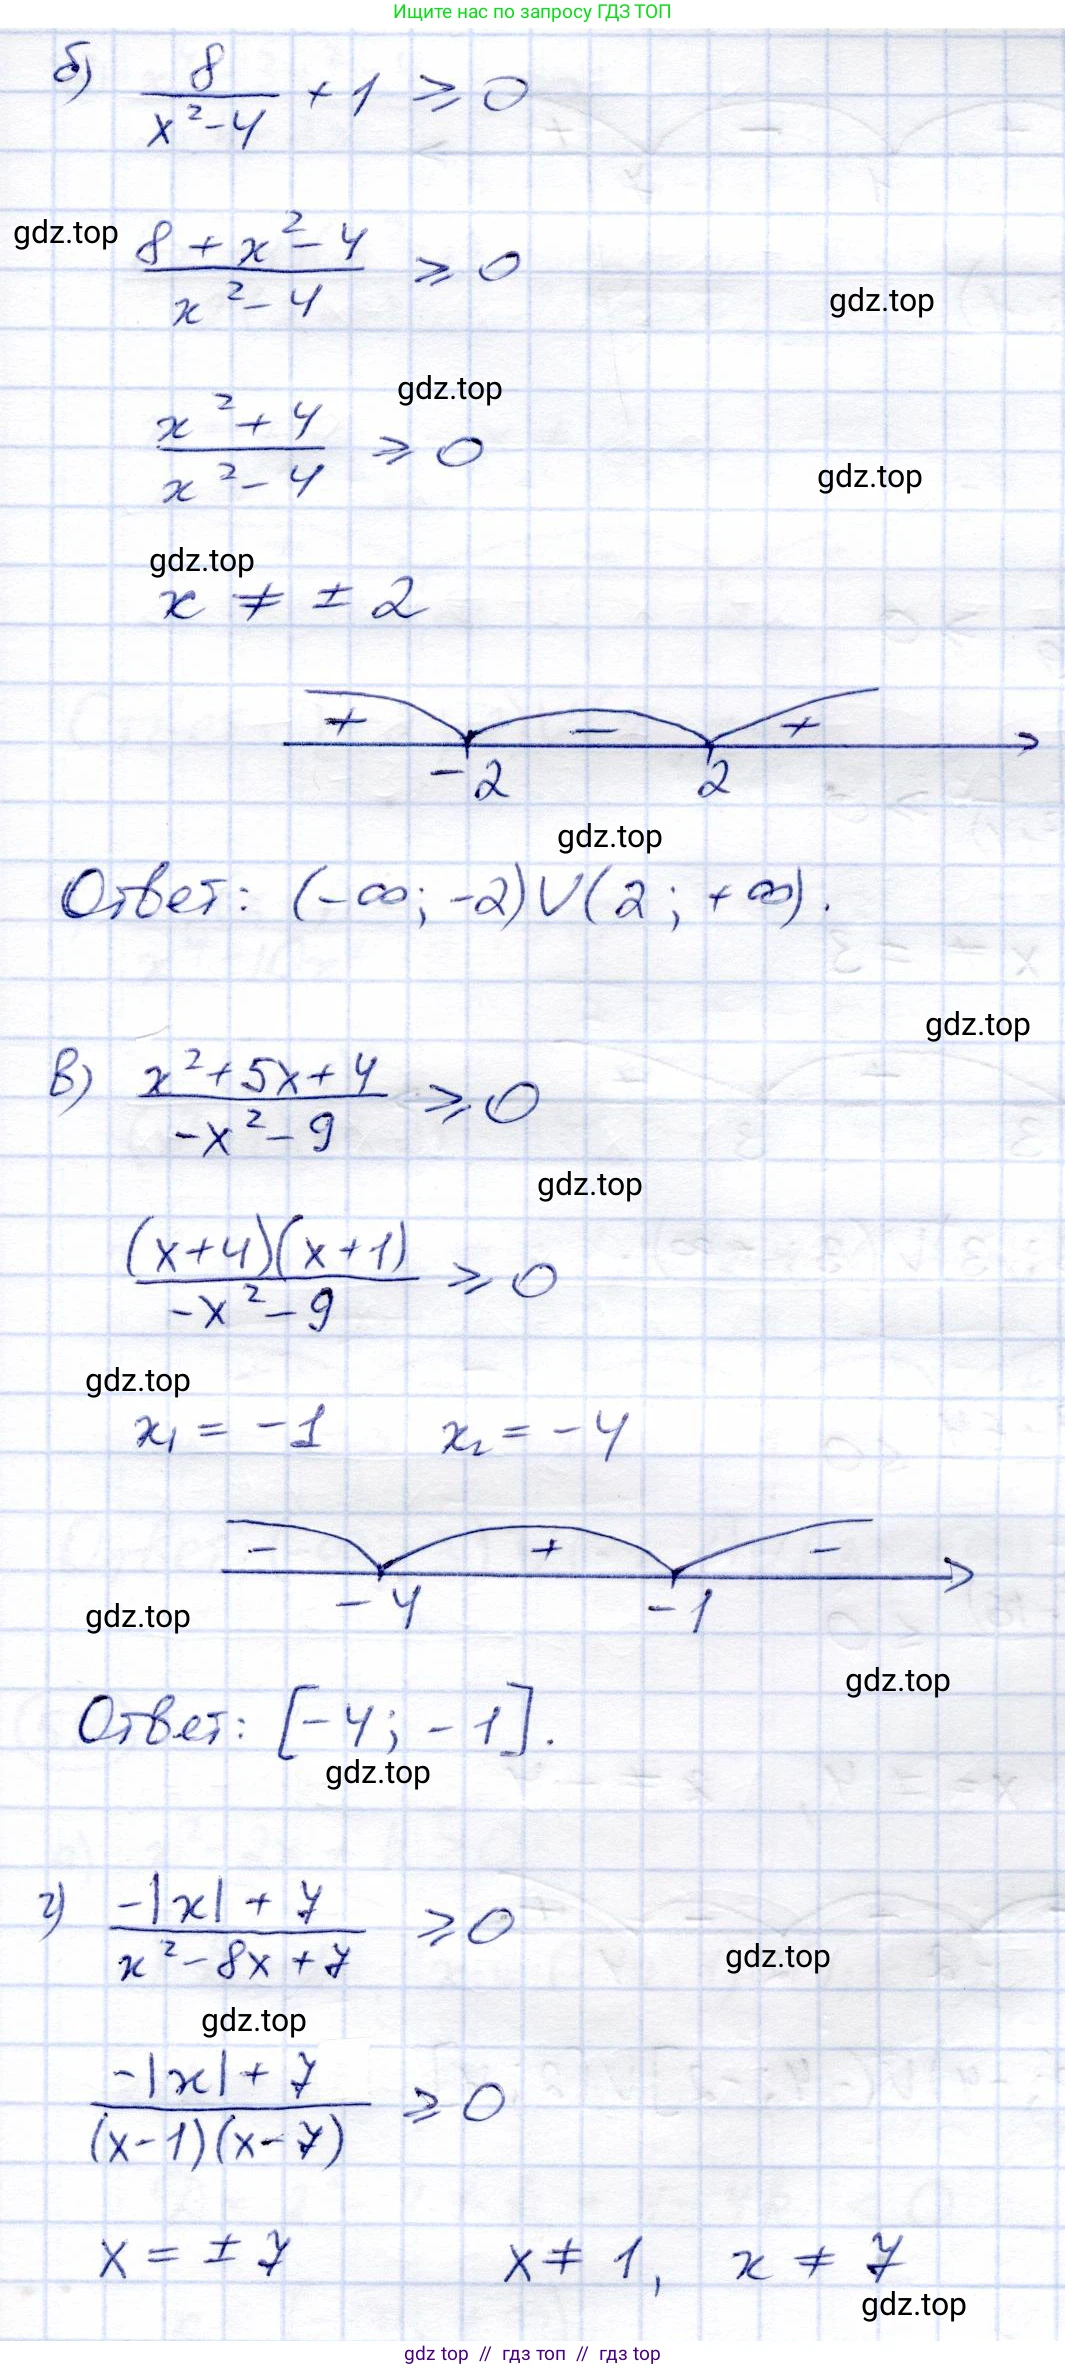 Ищите нас по запросу ГДЗ ТОП
б) 8/(x²-4) + 1 ⩾ 0
gdz.top
(8 + x² - 4)/(x² - 4) ⩾ 0
gdz.top
gdz.top
(x² + 4)/(x² - 4) ⩾ 0
gdz.top
gdz.top
x ≠ ± 2
+ - +
-2 2
gdz.top
Ответ: (-∞; -2)∪(2; +∞).
gdz.top
в) (x²+5x+4)/(-x²-9) ⩾ 0
gdz.top
(x+4)(x+1)/(-x²-9) ⩾ 0
gdz.top
x₁ = -1 x₂ = -4
- + -
-4 -1
gdz.top
gdz.top
Ответ: [-4; -1].
gdz.top
г) (-|x| + 7)/(x² - 8x + 7) ⩾ 0
gdz.top
gdz.top
(-|x| + 7)/((x-1)(x-7)) ⩾ 0
x = ± 7 x ≠ 1, x ≠ 7
gdz.top
gdz top // гдз топ // gdz top